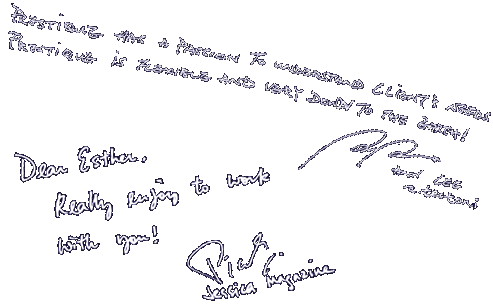 PRESTIQUE HAS A PASSION TO UNDERSTAND CLIENT'S NEEDS
PRESTIQUE IS FLEXIBLE AND VERY DOWN TO THE EARTH!
LEE
Dear Esther,
Really enjoy to work
with you!
Jessica Magazine